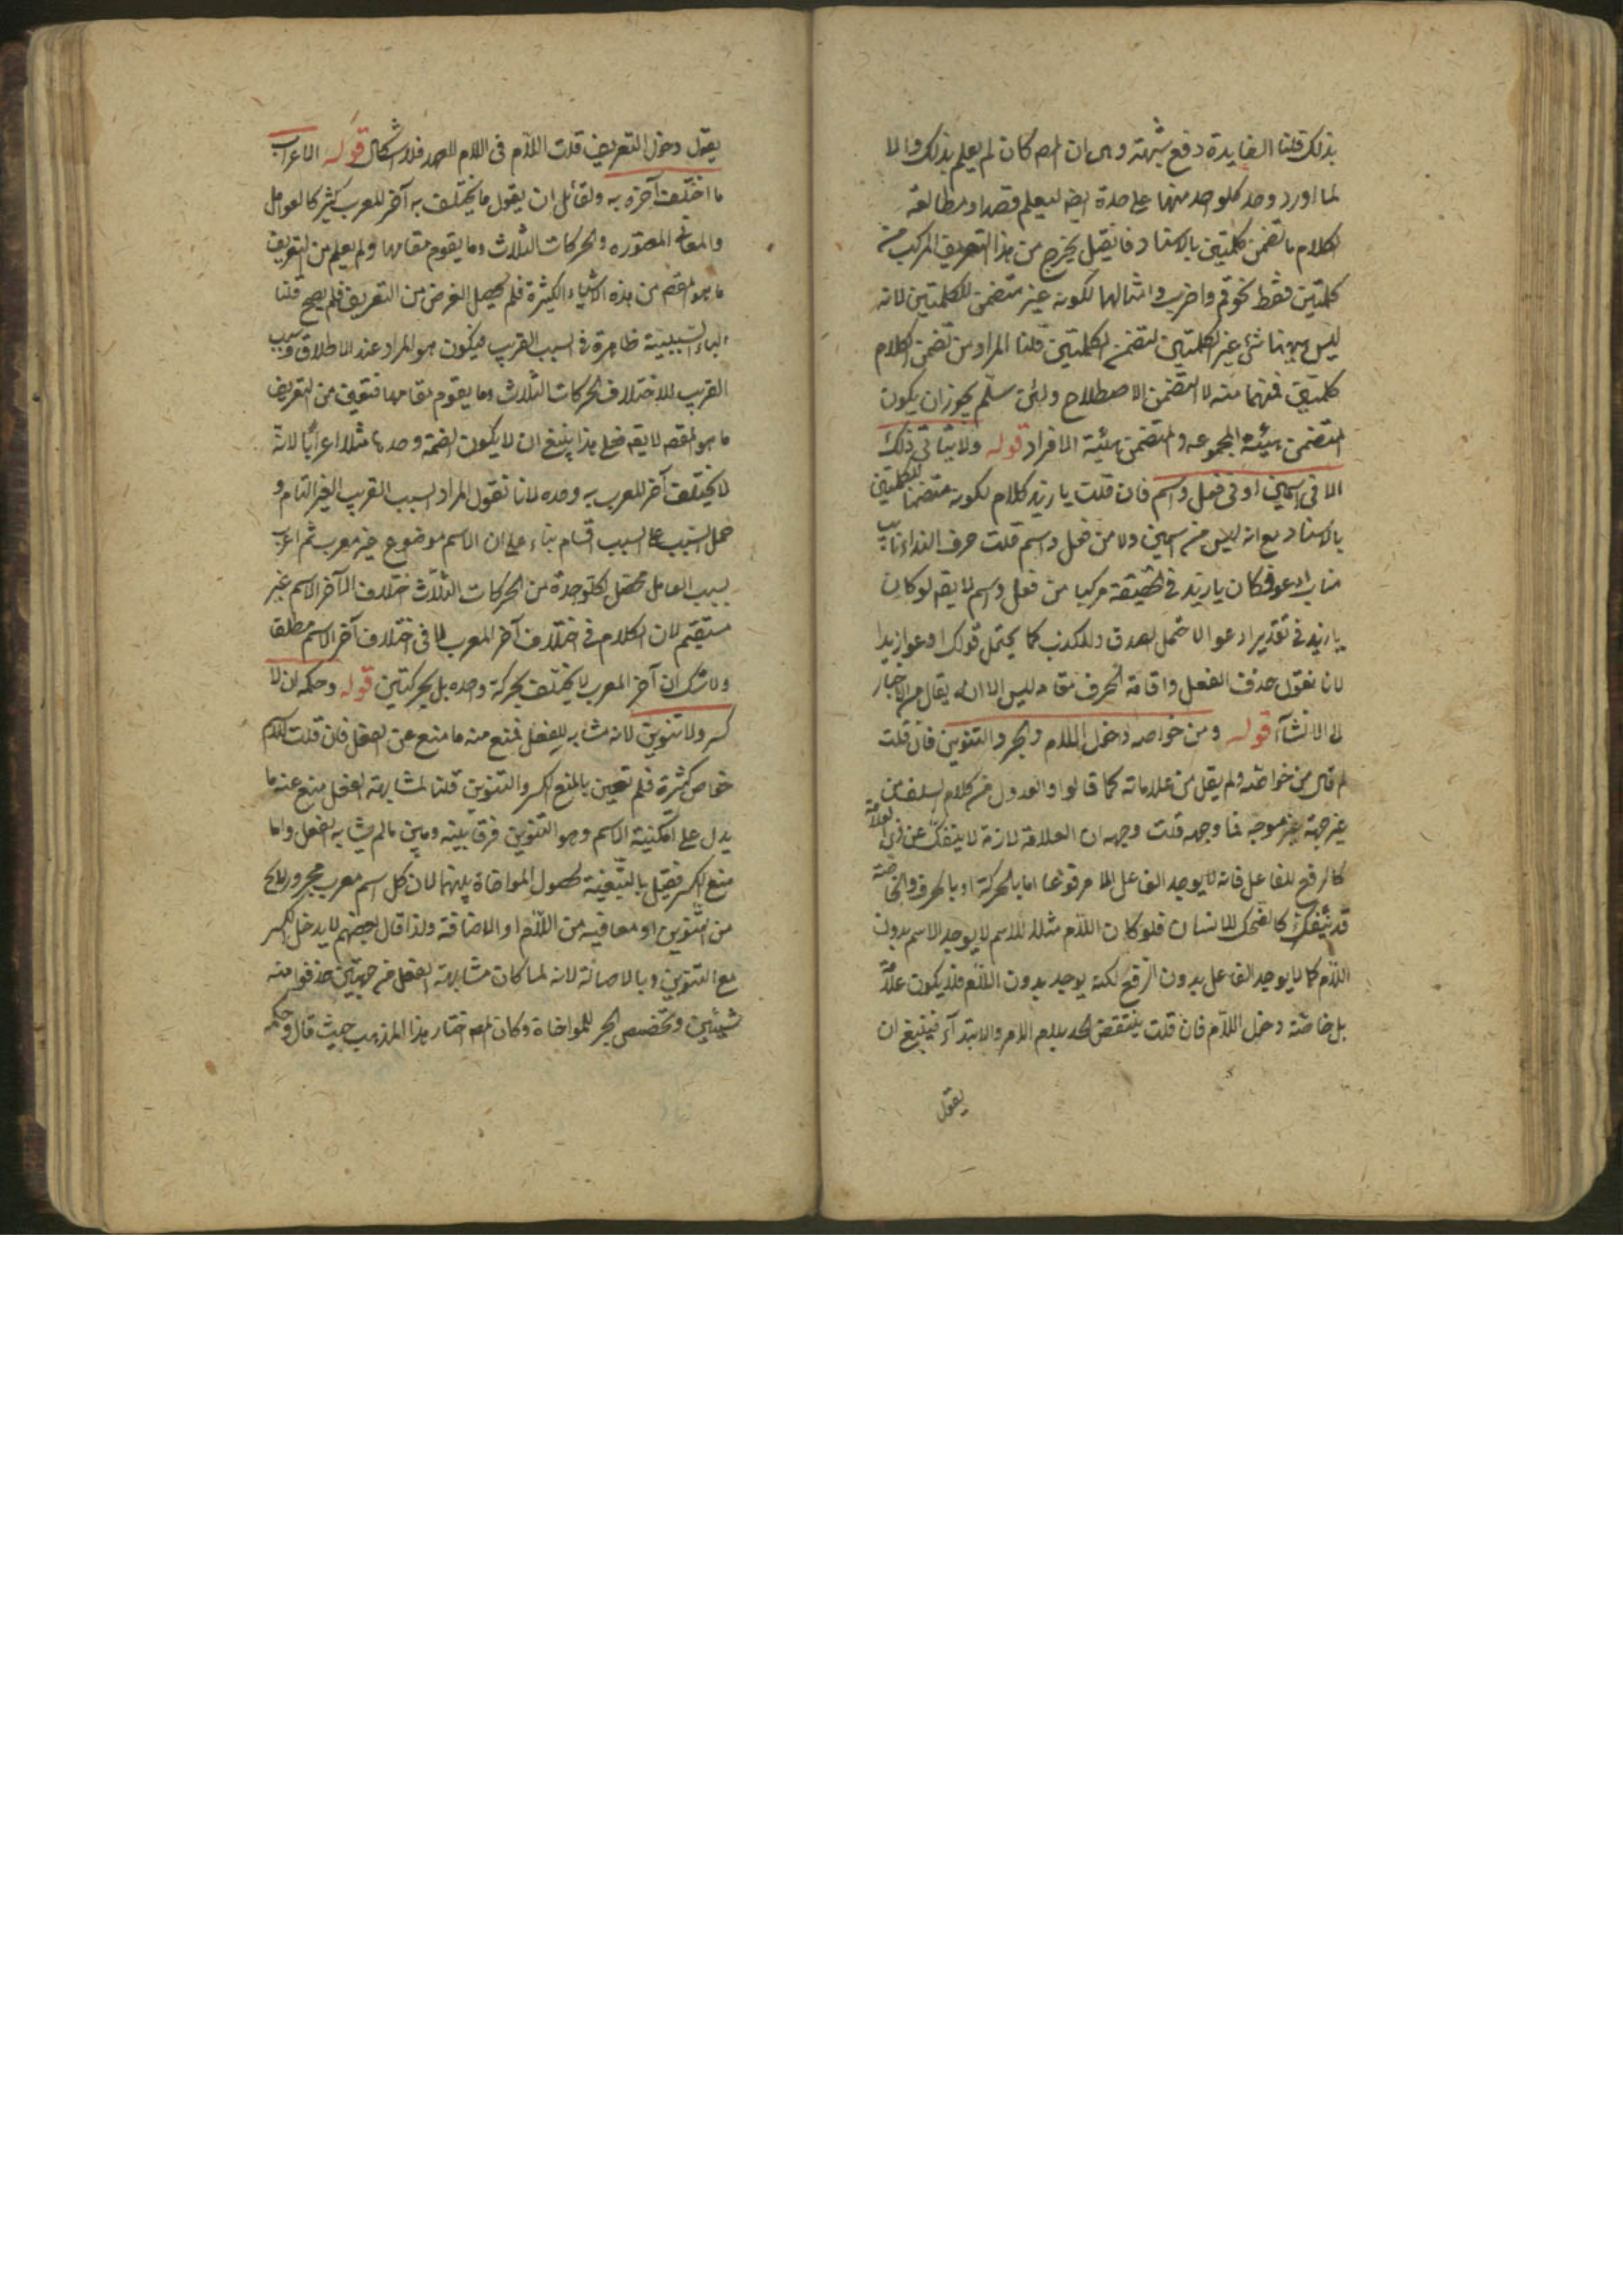 بذلك قلنا الفايدة دفع شبهة وهى ان المص كان لم يعلم بذلك والا
لما اورد وحد كلواحد منهما على حدة ايضا ليعلم قصدا ومطالعة
الكلام ما تضمن كلمتين بالاسناد فان قيل يخرج من هذا التعريف المركب من
كلمتين فقط نحو قم واضرب وامثالهما لكونه غير متضمن للكلمتين لانه
ليس ههنا شئ غير الكلمتين لتضمن الكلمتين قلنا المراد من تضمن الكلام
كلمتين منه لا التضمن الاصطلاح ولئن سلم يجوز ان يكون
المتضمن هيئة المجموعه والمتضمن هيئية الافراد قوله ولا يتأتى ذلك
الا فى اسمين او فى فعل واسم فان قلت يا زيد كلام لكونه متضمنا للكلمتين
بالاسناد مع انه ليس من اسمين ولا من فعل واسم قلت حرف النداء نايب
مناب ادعو فكان يا زيد فى الحقيقة مركبا من فعل واسم لا يقم لو كان
يا زيد فى تقدير ادعو لاحتمل الصدق والكذب كما يحتمل قولك ادعو زيدا
لانا نقول حذف الفعل واقامة الحرف مقامه ليس الا ان يقال من الاخبار
الى الانشاء قوله ومن خواصه دخول اللام والجر والتنوين فان قلت
لم قال من خواصه ولم يقل من علاماته كما قالوا والعدول من كلام السلف من
غير جهة غير موجه فما وجهه قلت وجهه ان العلامة لازمة لا ينفك عن ذى العلامة
كالرفع للفاعل فانه لا يوجد الفاعل الا مرفوعا اما بالحركة او بالحرف والخاصة
قد تنفك كالضحك للانسان فلو كان اللام مثلا للاسم لا يوجد الاسم بدون
اللام كما لا يوجد الفاعل بدون الرفع لكنه يوجد بدون اللام فلا يكون علامة
بل خاصة دخول اللام فان قلت ينتقض الحد بلام الامر والابتداء فينبغ ان
يقول
يقول دخول التعريف قلت اللام فى اللام للعهد فلا اشكال قوله الاعراب
ما اختلف آخره به ولقائل ان يقول ما يختلف به آخر المعرب كثير كالعوامل
والمعانى المعتوره والحركات الثلاث وما يقوم مقامها ولم يعلم من التعريف
ما هو المقصم من هذه الاشياء الكثيرة فلم يحصل الغرض من التعريف فلم يصح قلنا
الباء السببية ظاهرة فى السبب القريب فيكون هو المراد عند الاطلاق وسبب
القريب للاختلاف الحركات الثلاث وما يقوم مقامها فتعين من التعريف
ما هو المقصم لا يقم فعلى هذا ينبغ ان لا يكون الضمة وحدها مثلا اعرابا لانه
لا يختلف آخر المعرب به وحده لانا نقول المراد السبب القريب الغير التام و
حمل السبب على السبب التام بناء على ان الاسم موضوع غير معرب ثم اعرب
بسبب العامل فحصل لكلواحدة من الحركات الثلاث اختلاف الآخر الاسم غير
مستقيم لان الكلام فى اختلاف آخر المعرب لا فى اختلاف آخر الاسم مطلقا
ولا شك ان آخر المعرب لا يختلف بحركة واحده بل بحركتين قوله وحكمه ان لا
كسر ولا تنوين لانه مشابه للفعل فمنع منه ما منع عن الفعل فان قلت للاسم
خواص كثيرة فلم تعين بالمنع الكسر والتنوين قلنا لمشابهة الفعل منع عنه ما
يدل على امكنية الاسم وهو التنوين فرقا بينه وبين ما لم يشابه الفعل واما
منع الكسر فقيل بالتبعية لحصول المواخاة بينهما لان كل اسم معرب مجرور لا يخ
من التنوين او معاقبه من اللام او الاضافة ولذا قال بعضهم لا يدخل الكسر
مع التنوين وبالاصالة لانه لما كان مشابهة الفعل من جهتين حذفوا منه
شيئين وتخصيص الجر للمواخاة وكان المص اختار هذا المذهب حيث قال وحكمه